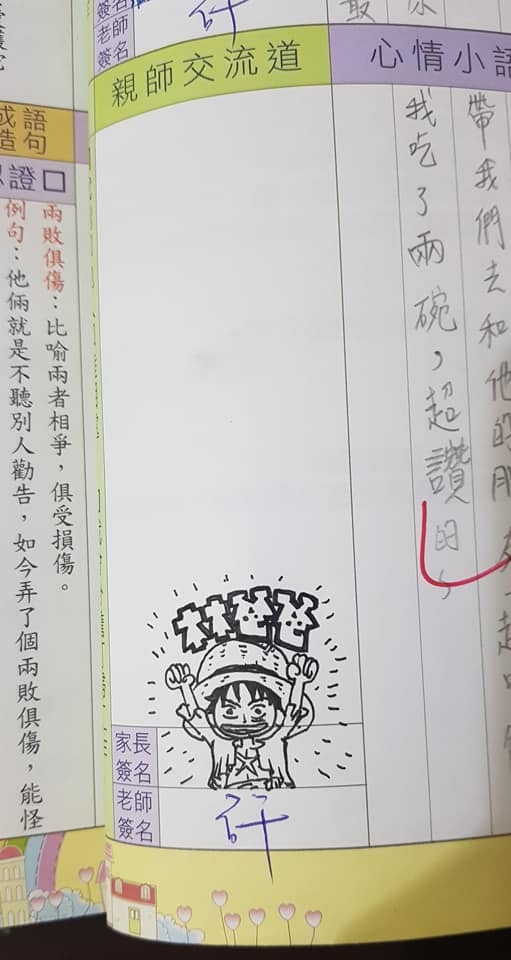 簽名
老師
簽名
最
親師交流道
心情小語
帶我們去和他的朋友一起吃
我吃了兩碗，超讚的
家長
簽名
老師
簽名
成語
造句
證口
兩敗俱傷：比喻兩者相爭，俱受損傷。
例句：他倆就是不聽別人勸告，如今弄了個兩敗俱傷，能怪